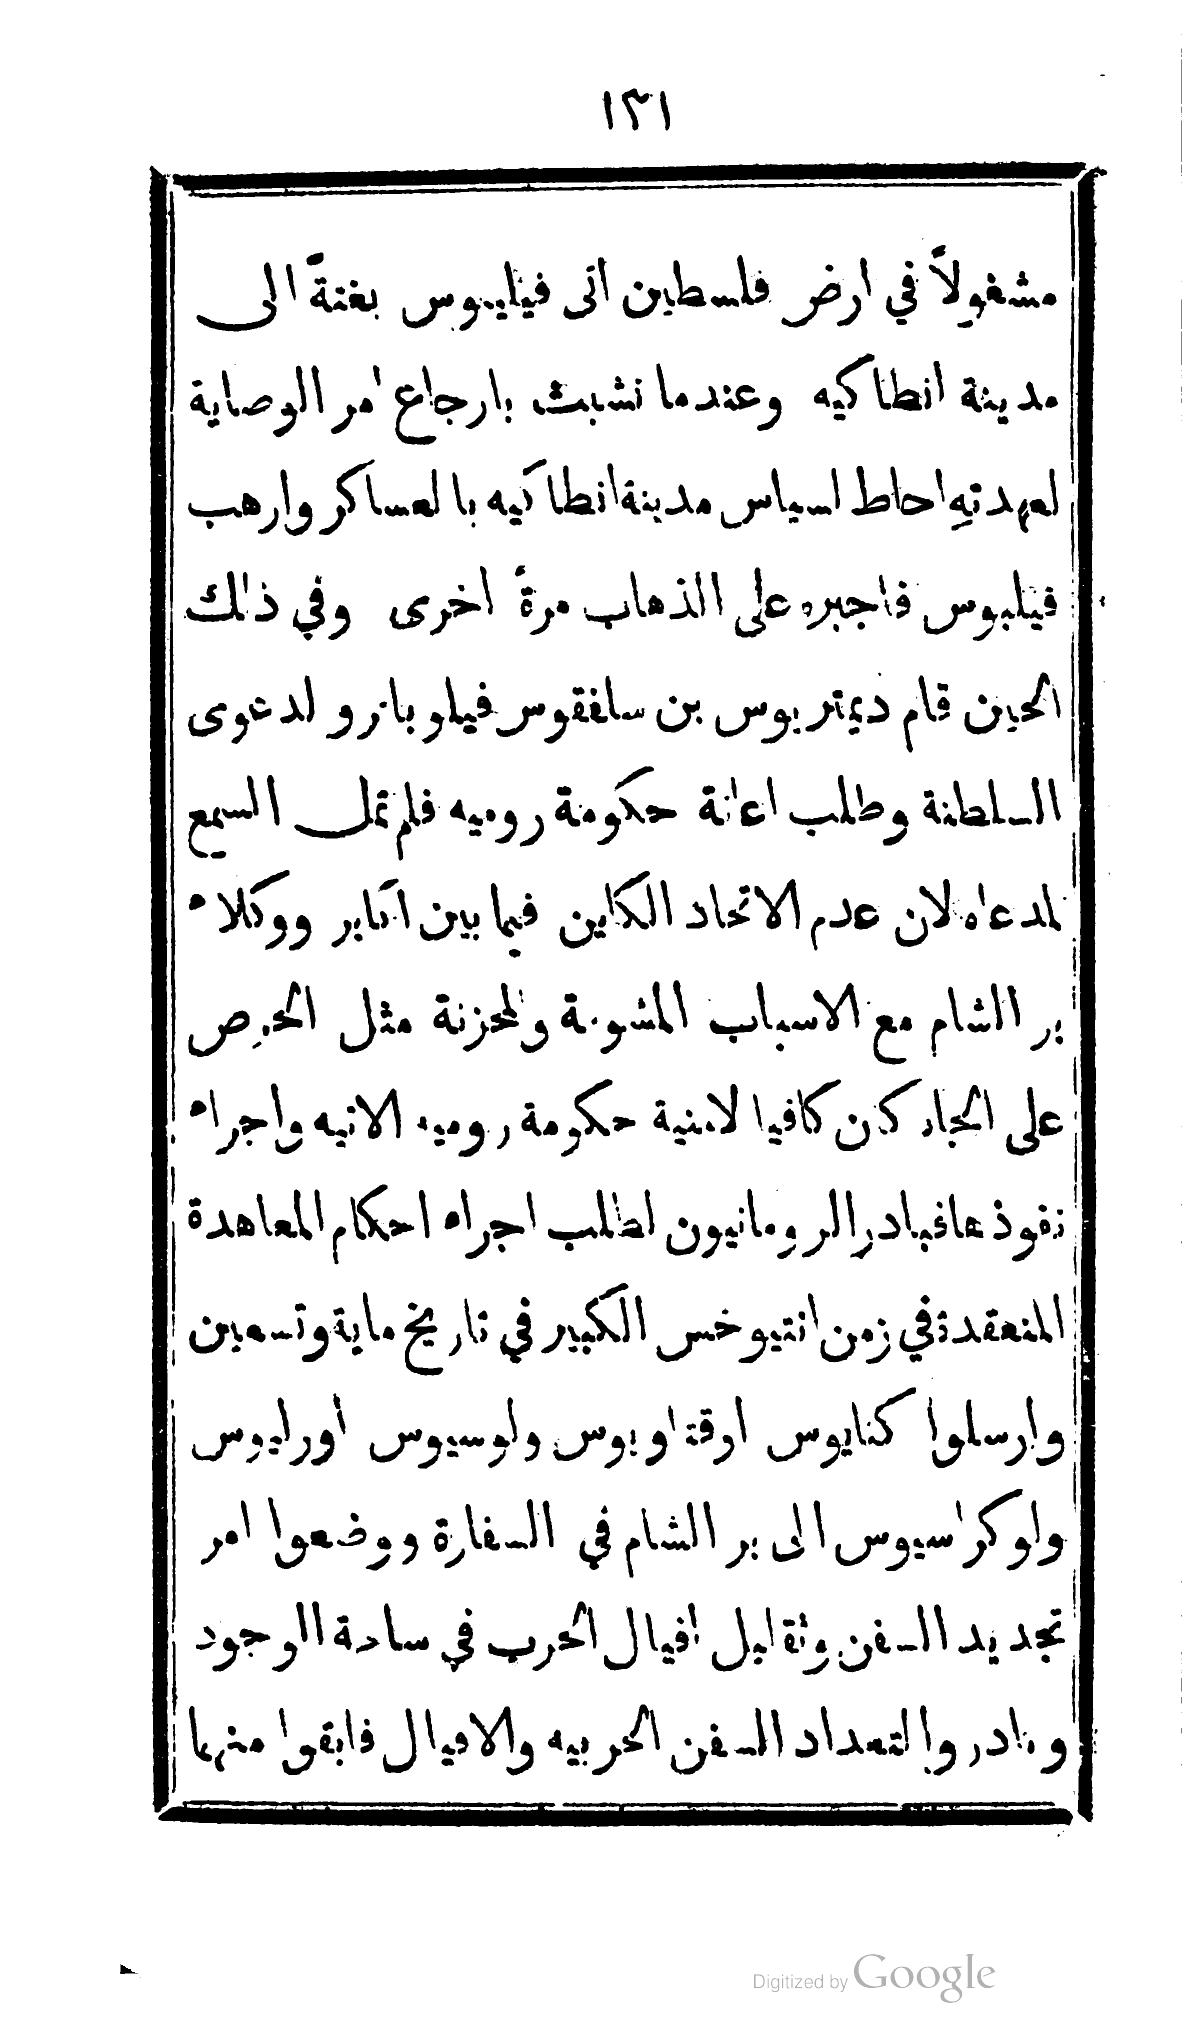 ١٣١
مشغولاً في ارض فلسطين اتى فيليبوس بغتةً الى
مدينة انطاكيه وعندما تشبث بارجاع امر الوصاية
لعهدتهِ احاط لسياس مدينة انطاكيه بالعساكر وارهب
فيليبوس فاجبره على الذهاب مرةً اخرى وفي ذلك
الحين قام ديمتريوس بن سلفقوس فيلوباترو لدعوى
السلطنة وطلب اعانة حكومة روميه فلم تمل السمع
لمدعاه لان عدم الاتحاد الكاين فيما بين اكابر ووكلاء
بر الشام مع الاسباب المشومة والمحزنة مثل الحرص
على الجاه كان كافيا لامنية حكومة روميه الاتيه واجراء
نفوذ عافبادر الرومانيون لطلب اجراء احكام المعاهدة
المنعقدة في زمن انتيوخس الكبير في تاريخ ماية وتسعين
وارسلوا كنايوس اوقتاويوس ولوسيوس اورليوس
ولوكراسيوس الى بر الشام في السفارة ووضعوا امر
تجديد السفن وتقليل افيال الحرب في ساحة الوجود
وبادروا لتعداد السفن الحربيه والافيال فابقوا منهما
Digitized by Google